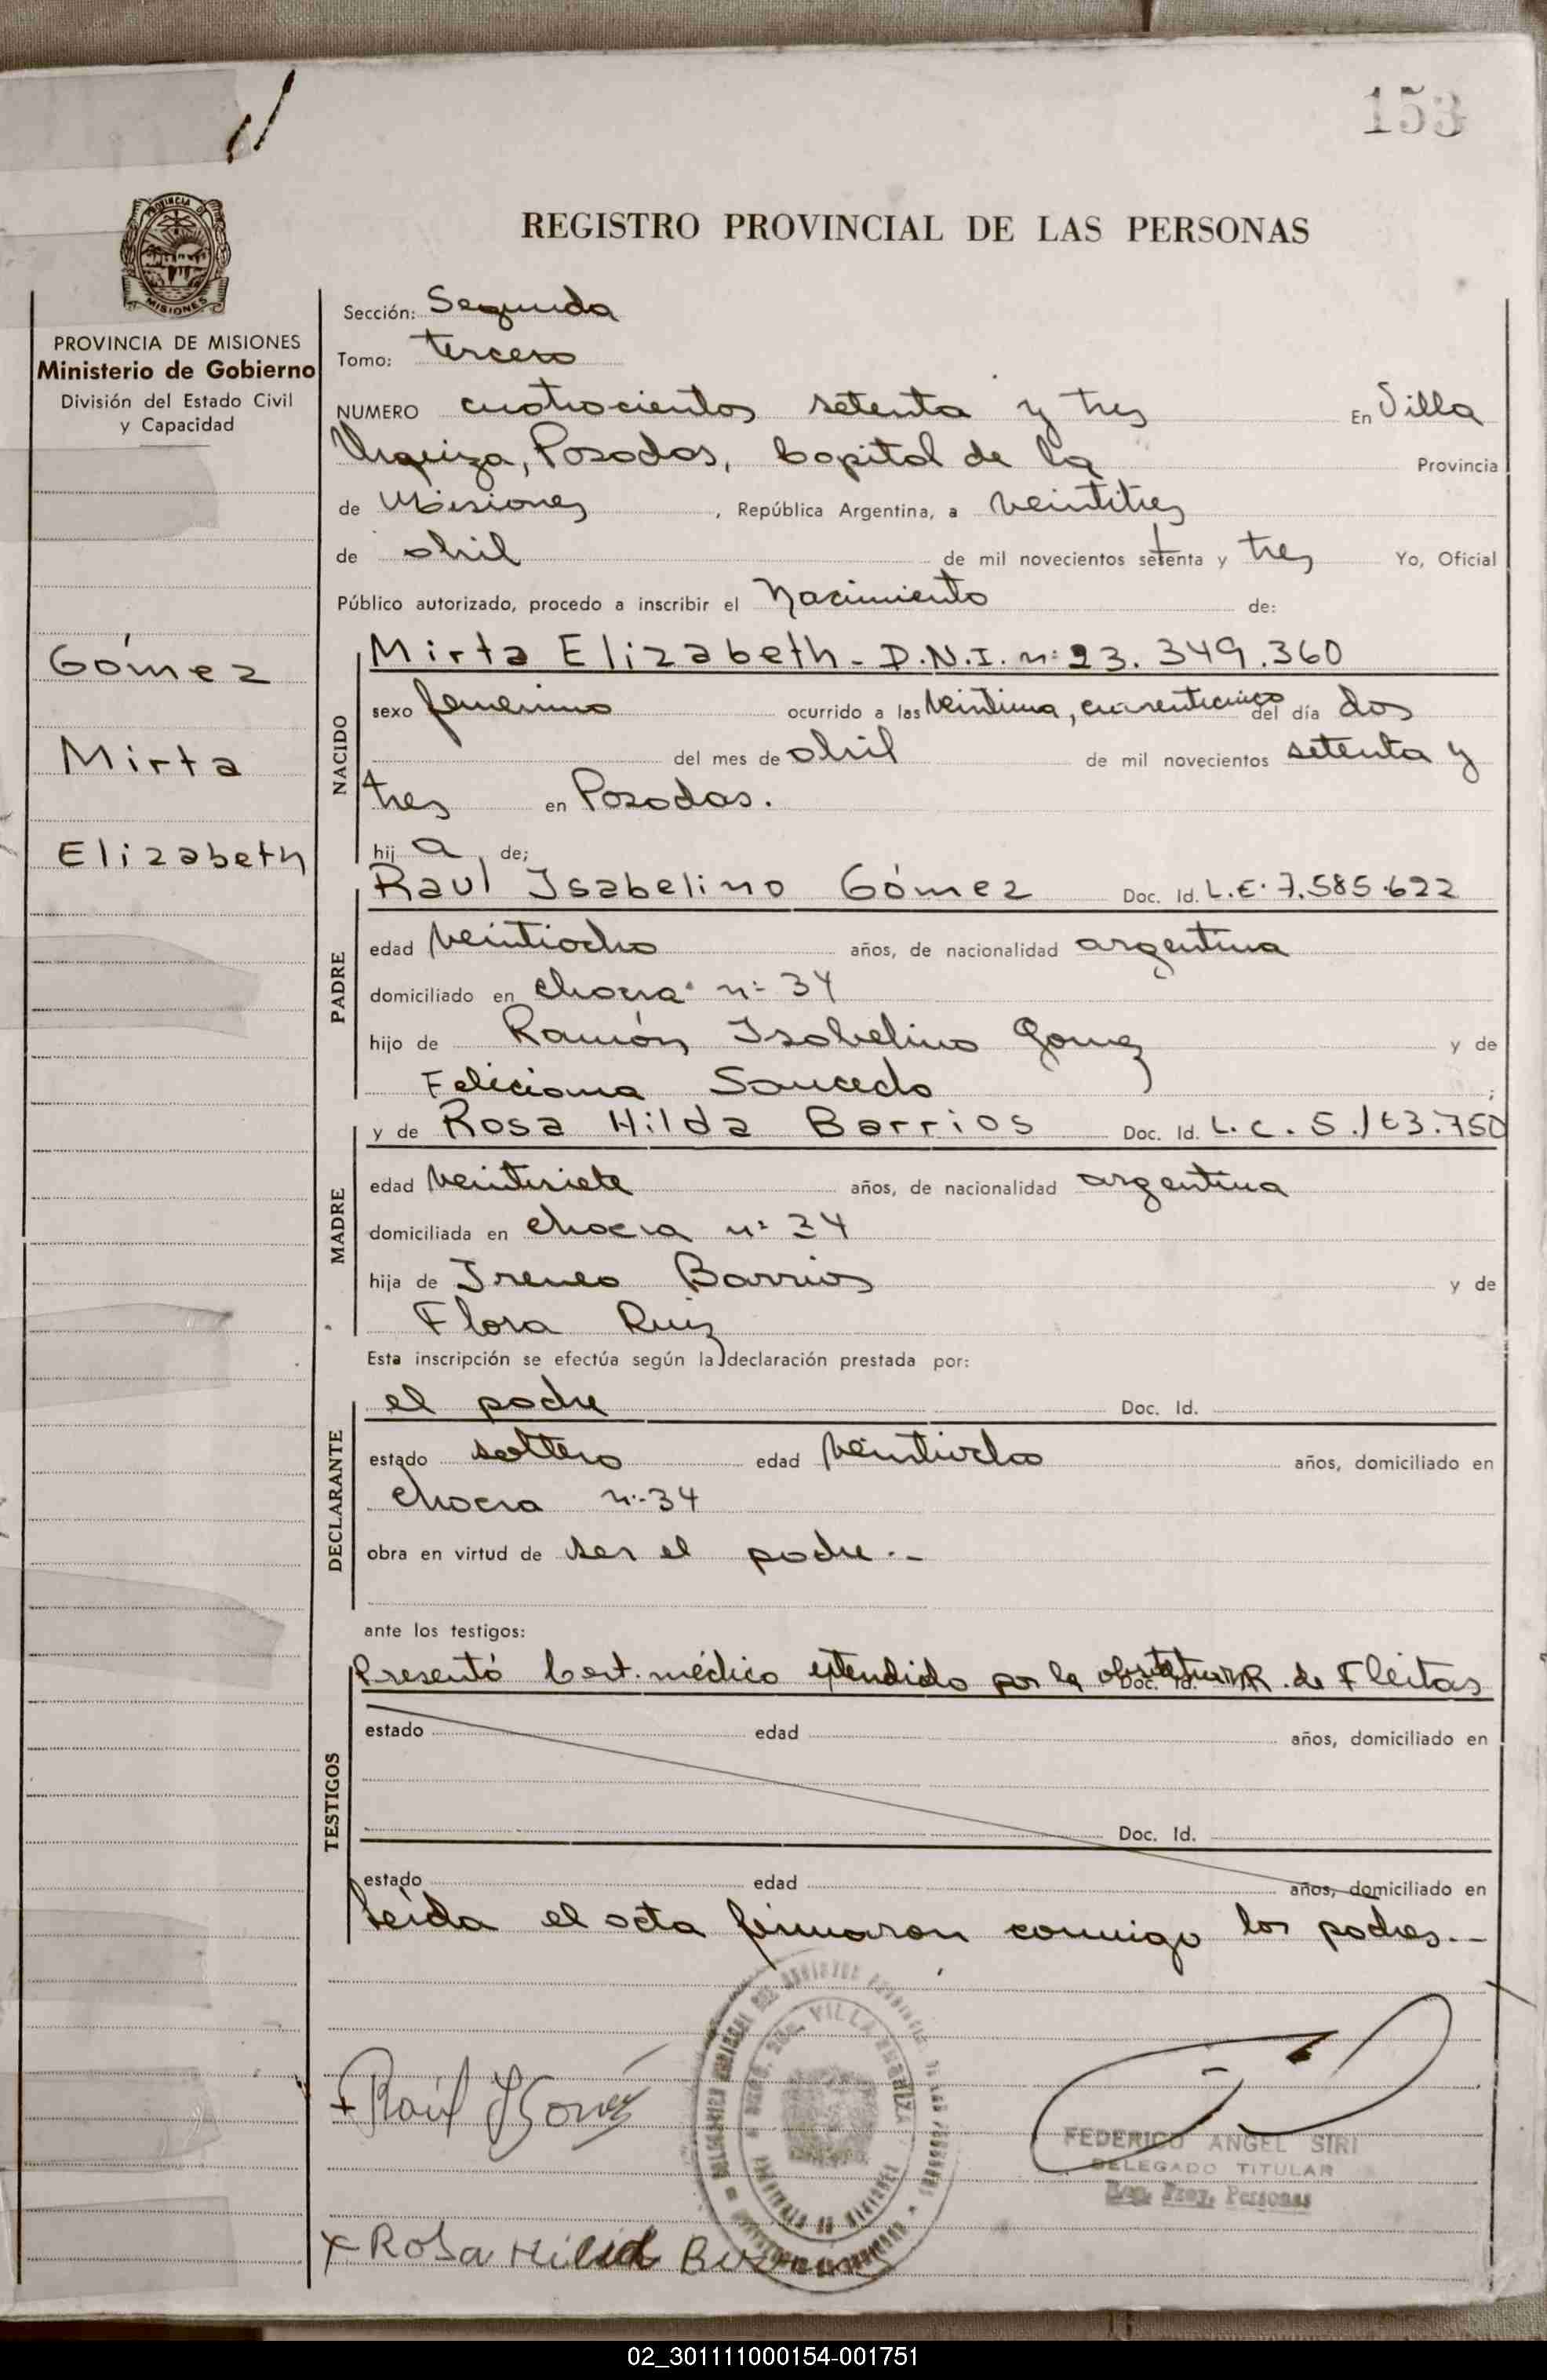 153
REGISTRO PROVINCIAL DE LAS PERSONAS
PROVINCIA DE
MISIONES
PROVINCIA DE MISIONES
Ministerio de Gobierno
División del Estado Civil
y Capacidad
Gómez
Mirta
Elizabeth
Sección: Segunda
Tomo: tercero
NUMERO cuatrocientos setenta y tres En Villa
Urquiza, Posadas, Capital de la Provincia
de Misiones, República Argentina, a veintitres
de abril de mil novecientos setenta y tres Yo, Oficial
Público autorizado, procedo a inscribir el Nacimiento de:
NACIDO
Mirta Elizabeth - D.N.I. nº 23.349.360
sexo femenino ocurrido a las veintiuna, cuarenticinco del día dos
del mes de abril de mil novecientos setenta y
tres en Posadas.
hij a de;
PADRE
Raul Isabelino Gómez Doc. Id. L.E. 7.585.622
edad veintiocho años, de nacionalidad argentina
domiciliado en chacra nº 34
hijo de Ramón Isabelino Gomez y de
Feliciana Saucedo ;
MADRE
y de Rosa Hilda Barrios Doc. Id. L.C. 5.163.750
edad veintisiete años, de nacionalidad argentina
domiciliada en chacra nº 34
hija de Ireneo Barrios y de
Flora Ruiz
Esta inscripción se efectúa según la declaración prestada por:
DECLARANTE
el padre Doc. Id.
estado soltero edad veintiocho años, domiciliado en
chacra nº 34
obra en virtud de ser el padre.-
ante los testigos:
TESTIGOS
Presentó Cert. médico extendido por la obstetra M.R. de Fleitas
Doc. Id.
estado edad años, domiciliado en
Doc. Id.
estado edad años, domiciliado en
Leída el acta firmaron conmigo los padres.-
VILLA URQUIZA
+ Raúl I Gomez
FEDERICO ANGEL SIRI
DELEGADO TITULAR
Reg. Prov. Personas
x Rosa Hilda
02_301111000154-001751